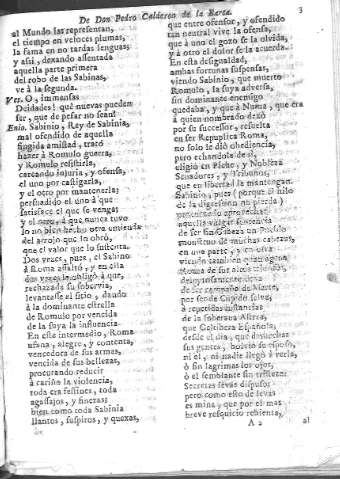 De Don Pedro Calderon de la Barca.
3
al Mundo las representan,
el tiempo en veloces plumas,
la fama en no tardas lenguas;
y assi, dexando assentada
aquella parte primera
del robo de las Sabinas,
ve à la segunda.
Ver. O, immensas
Deidades! què nuevas pueden
ser, que de pesar no sean!
Enio. Sabinio, Rey de Sabinia,
mal ofendido de aquella
fingida amistad, tratò
hazer à Romulo guerra,
y Romulo resistirla,
careando injuria, y ofensa,
el uno por castigarla,
y el otro por mantenerla;
persuadido el uno à que
satisface el que se venga;
y el otro, à que nunca tuvo
lo no bien hecho otra enmienda
del arrojo que lo obrò,
que el valor que lo sustenta.
Dos vezes, pues, el Sabino
à Roma assaltò, y en ella
dos vezes le obligò à que,
rechazada su sobervia,
levantasse el sitio, dando
à la dominante estrella
de Romulo por vencida
de la suya la influencia.
En este intermedio, Roma
ufana, alegre, y contenta,
vencedora de sus armas,
vencida de sus bellezas,
procurando reducir
à cariño la violencia,
toda era festines, toda
agassajos, y finezas;
bien como toda Sabinia
llantos, suspiros, y quexas,
que entre ofensor, y ofendido
tan neutral vive la ofensa,
que à uno el gozo se la olvida,
y à otro el dolor se la acuerda.
En esta desigualdad,
ambas fortunas suspensas,
viendo Sabinio, que muerto
Romulo, la suya adversa,
sin dominante enemigo
quedaba, y que à Numa, que era
à quien nombrado dexò
por su successor, resuelta
en ser Republica Roma,
no solo le diò obediencia,
pero echandola de sì,
eligiò en Plebe, y Nobleza
Senadores, y Tribunos,
que en libertad la mantengan.
Sabinio, pues (porque el hilo
de la digression no pierda)
aquella vulgar sentencia
de ser sin Cabeza un Pueblo
monstruo de muchas cabezas,
en una parte, y en otra
de la soberana Astrea,
que Celtibera Española,
desde el dia, que deshechas
sus gentes, bolviò su esposo,
ni èl, ni nadie llegò à verla,
ò sin lagrimas los ojos,
ò el semblante sin tristeza:
Secretas levas dispuso
pero como esto de levas
es mina, que por el mas
breve resquicio rebienta,
A 2
al